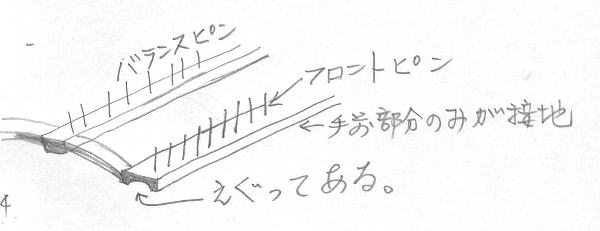 バランスピン
フロントピン
手前部分のみが接地
えぐってある。
4